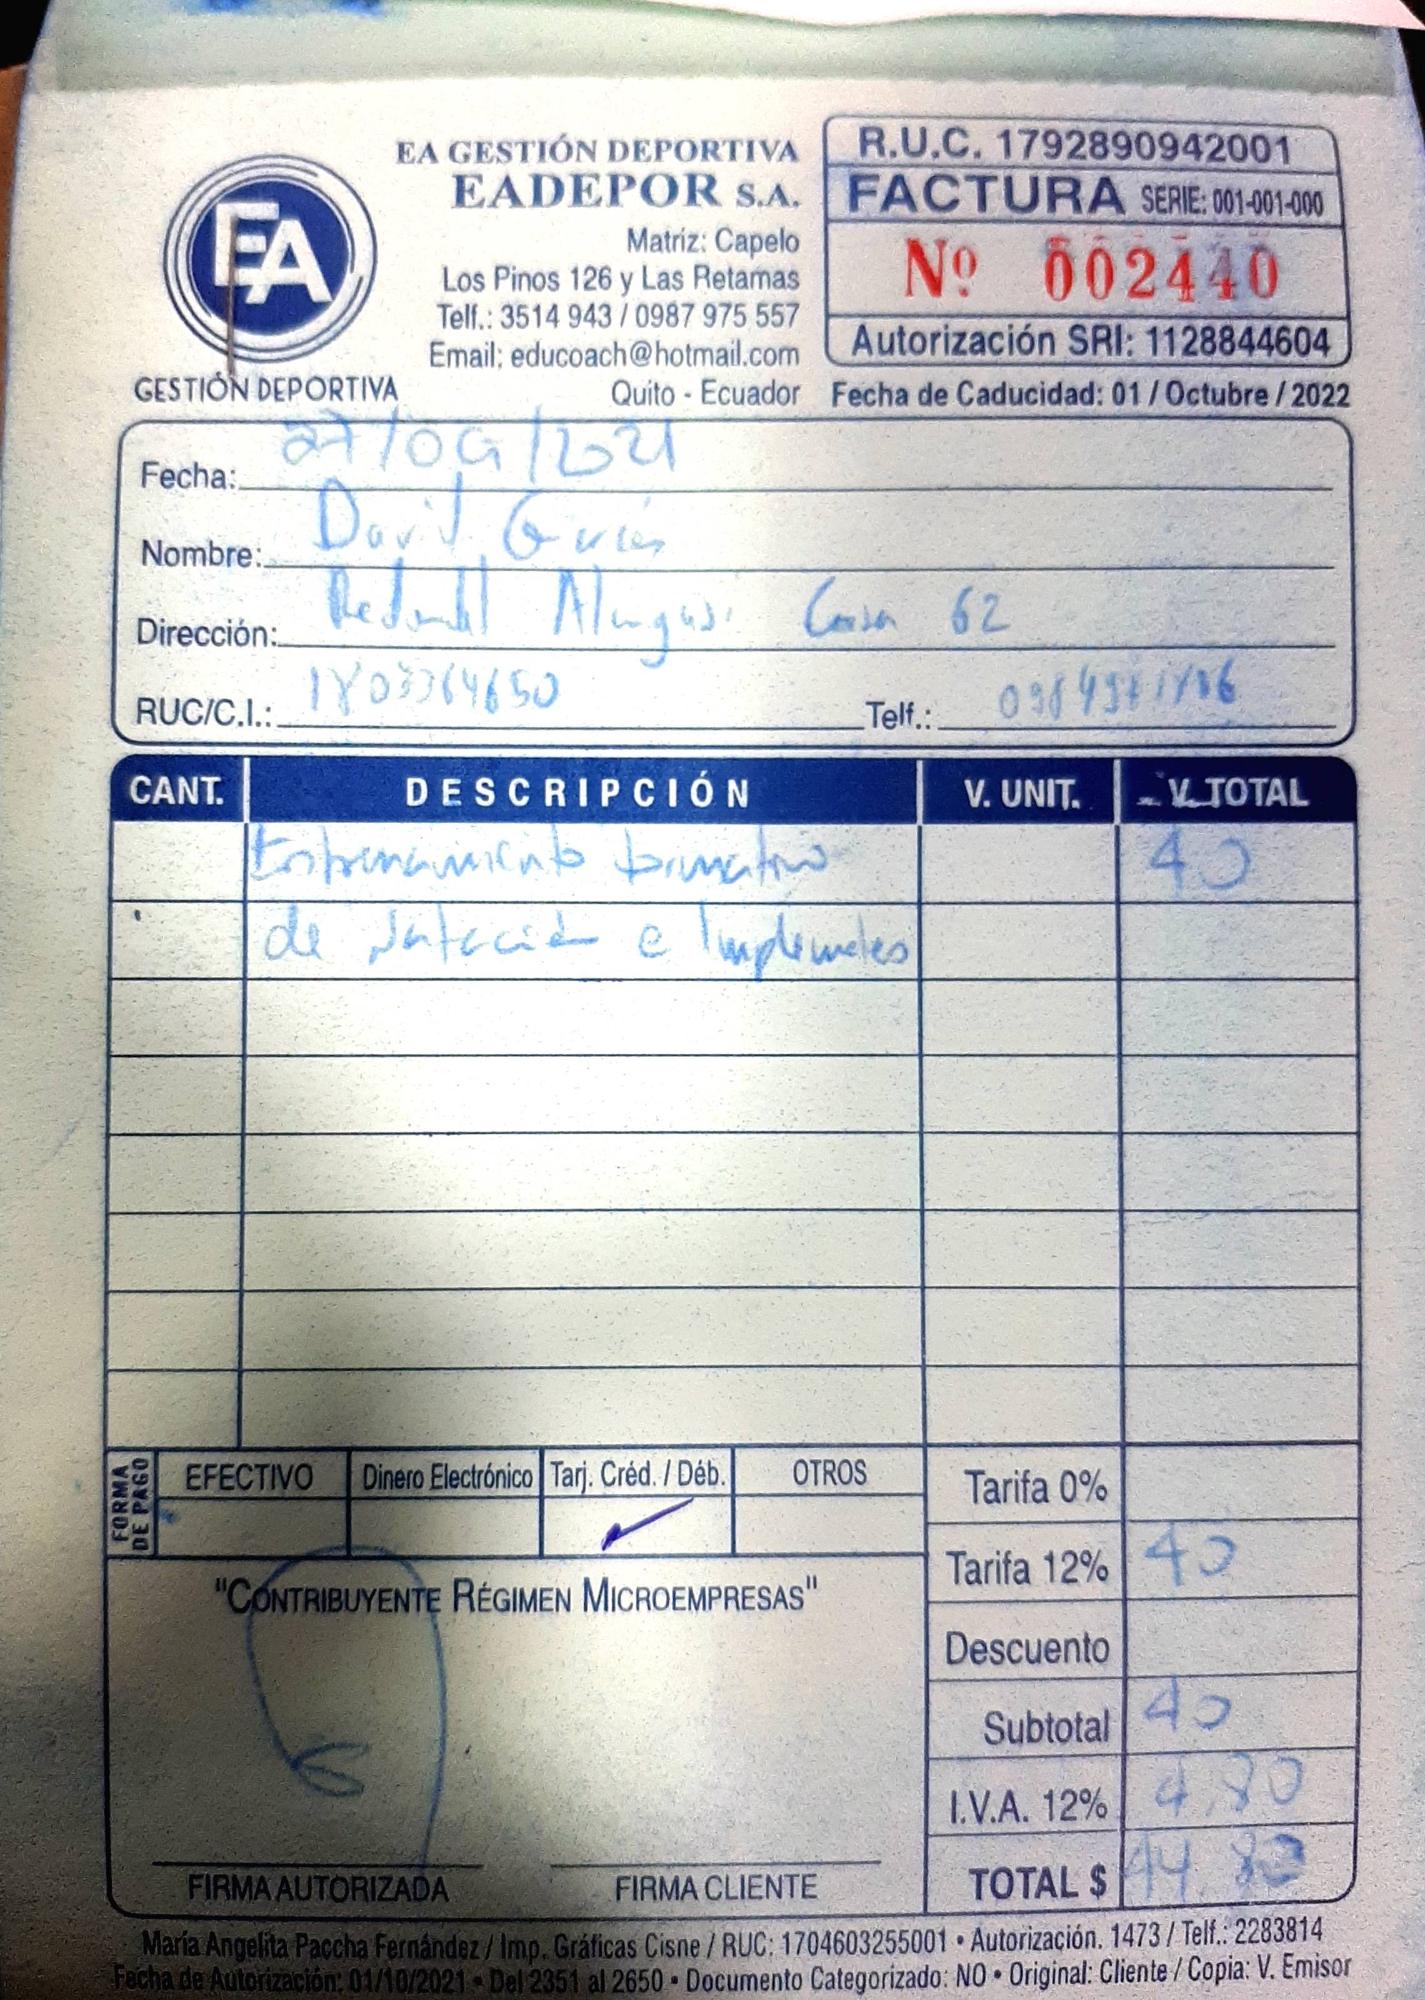 EA GESTIÓN DEPORTIVA
EADEPOR S.A.
Matríz: Capelo
Los Pinos 126 y Las Retamas
Telf.: 3514 943 / 0987 975 557
Email: educoach@hotmail.com
Quito - Ecuador
EA
GESTIÓN DEPORTIVA
R.U.C. 1792890942001
FACTURA SERIE: 001-001-000
Nº 002440
Autorización SRI: 1128844604
Fecha de Caducidad: 01 / Octubre / 2022
Fecha: 27/09/2021
Nombre: David
Dirección: Casa 62
RUC/C.I.: 1803364650 Telf.:
CANT. DESCRIPCIÓN V. UNIT. V. TOTAL
Entrenamiento formativo 40
de natación e Implementos
FORMA DE PAGO
EFECTIVO Dinero Electrónico Tarj. Créd. / Déb. OTROS
Tarifa 0%
Tarifa 12% 40
"CONTRIBUYENTE RÉGIMEN MICROEMPRESAS"
Descuento
Subtotal 40
I.V.A. 12% 4,80
TOTAL $ 44,80
FIRMA AUTORIZADA FIRMA CLIENTE
María Angelita Paccha Fernández / Imp. Gráficas Cisne / RUC: 1704603255001 • Autorización. 1473 / Telf.: 2283814
Fecha de Autorización: 01/10/2021 • Del 2351 al 2650 • Documento Categorizado: NO • Original: Cliente / Copia: V. Emisor